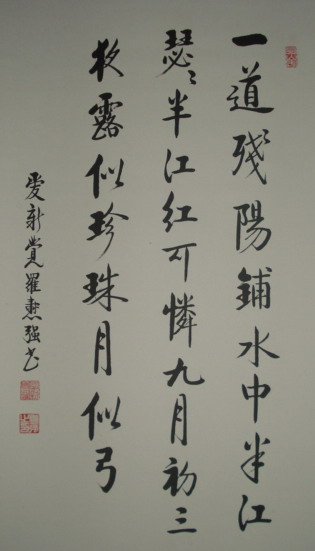 一道殘陽鋪水中半江
瑟〻半江紅可憐九月初三
夜露似珍珠月似弓
愛新覺羅强书